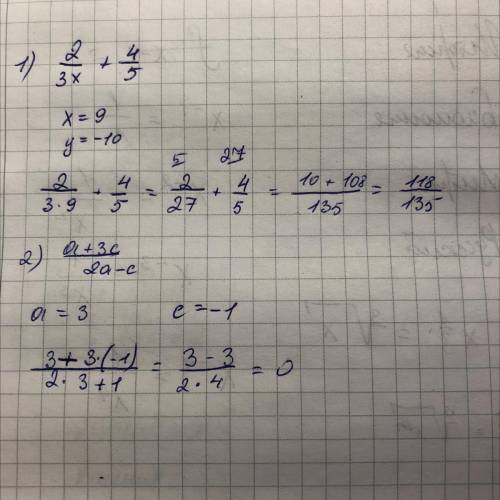 1) 2/3x + 4/5
x = 9
y = -10
5 27
2/3·9 + 4/5 = 2/27 + 4/5 = 10 + 108/135 = 118/135
2) a+3c/2a-c
a = 3 c = -1
3+3·(-1)/2·3+1 = 3-3/2·4 = 0